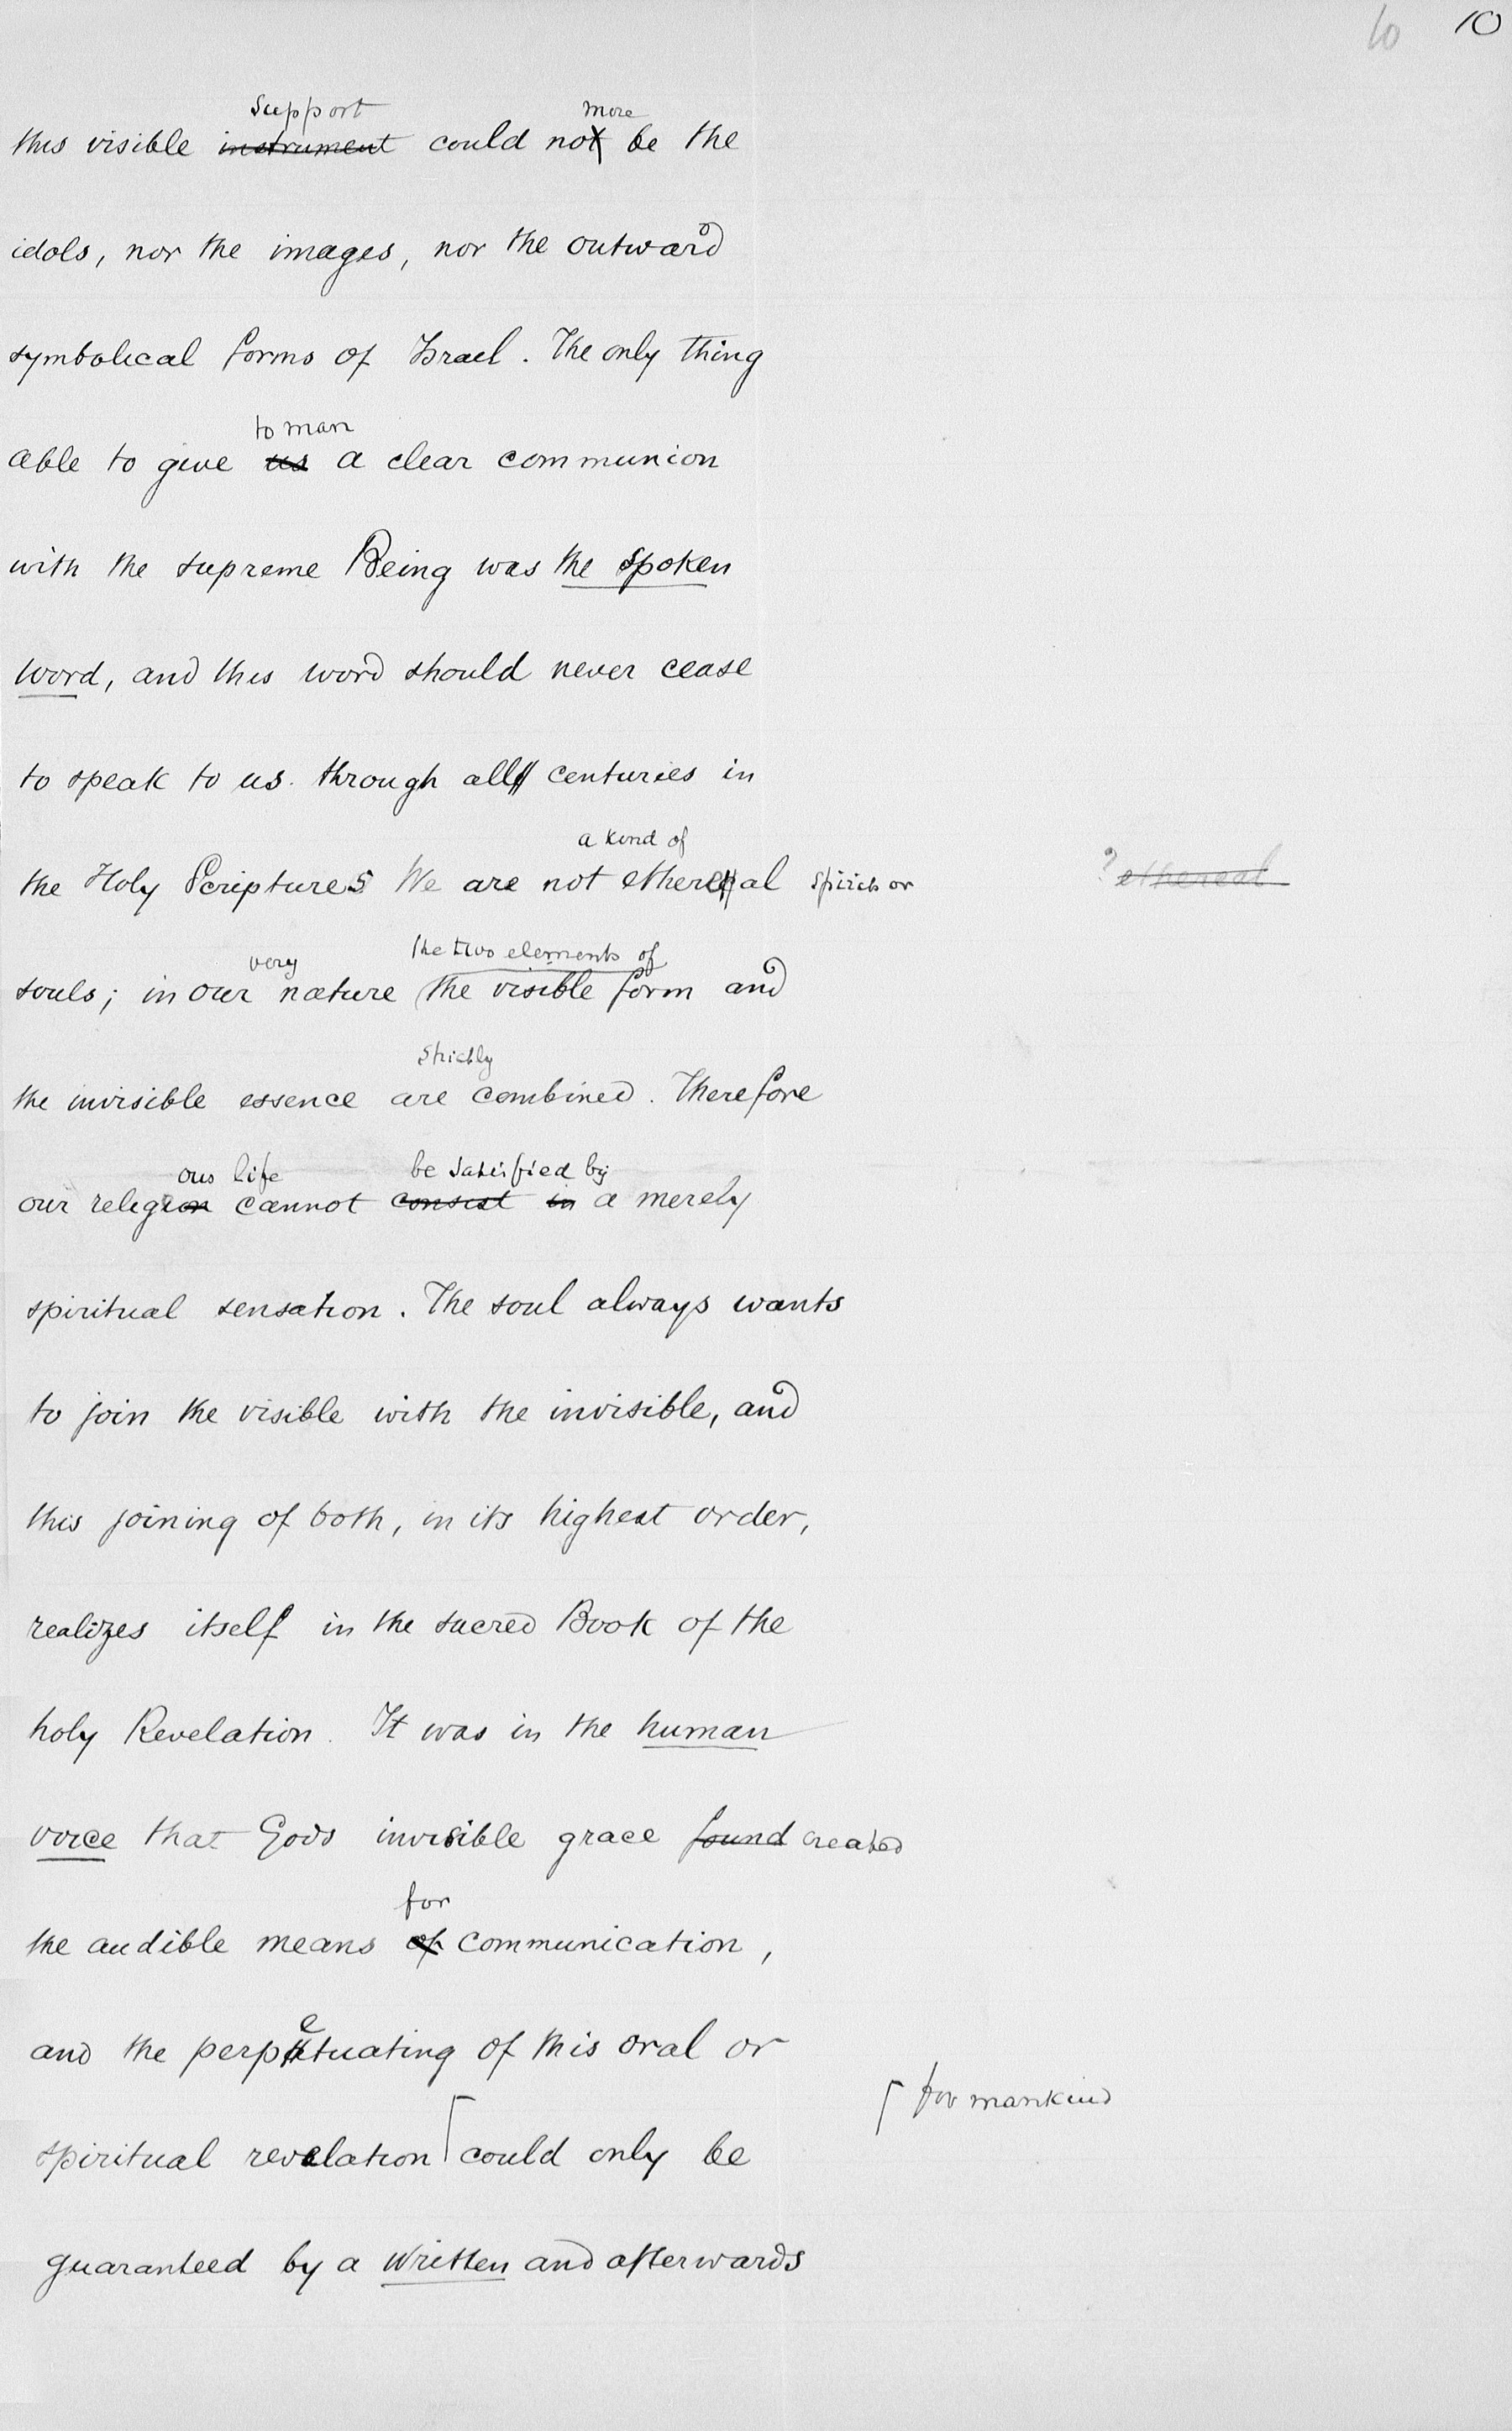 10 10
support more
this visible instrument could not be the
idols, nor the images, nor the outward
symbolical forms of Israel. The only thing
to man
able to give us a clear communion
with the supreme Being was the spoken
word, and this word should never cease
to speak to us through all centuries in
a kind of
the Holy Scriptures We are not ethereal spirits or ? ethereal
very the two elements of
souls; in our nature the visible form and
strictly
the invisible essence are combined. Therefore
ous life be satisfied by
our religion cannot consist in a merely
spiritual sensation. The soul always wants
to join the visible with the invisible, and
this joining of both, in its highest order,
realizes itself in the sacred Book of the
holy Revelation. It was in the human
voice that Gods invisible grace found created
for
the audible means of communication,
and the perpetuating of this oral or
for mankind
spiritual revelation could only be
guaranteed by a written and afterwards